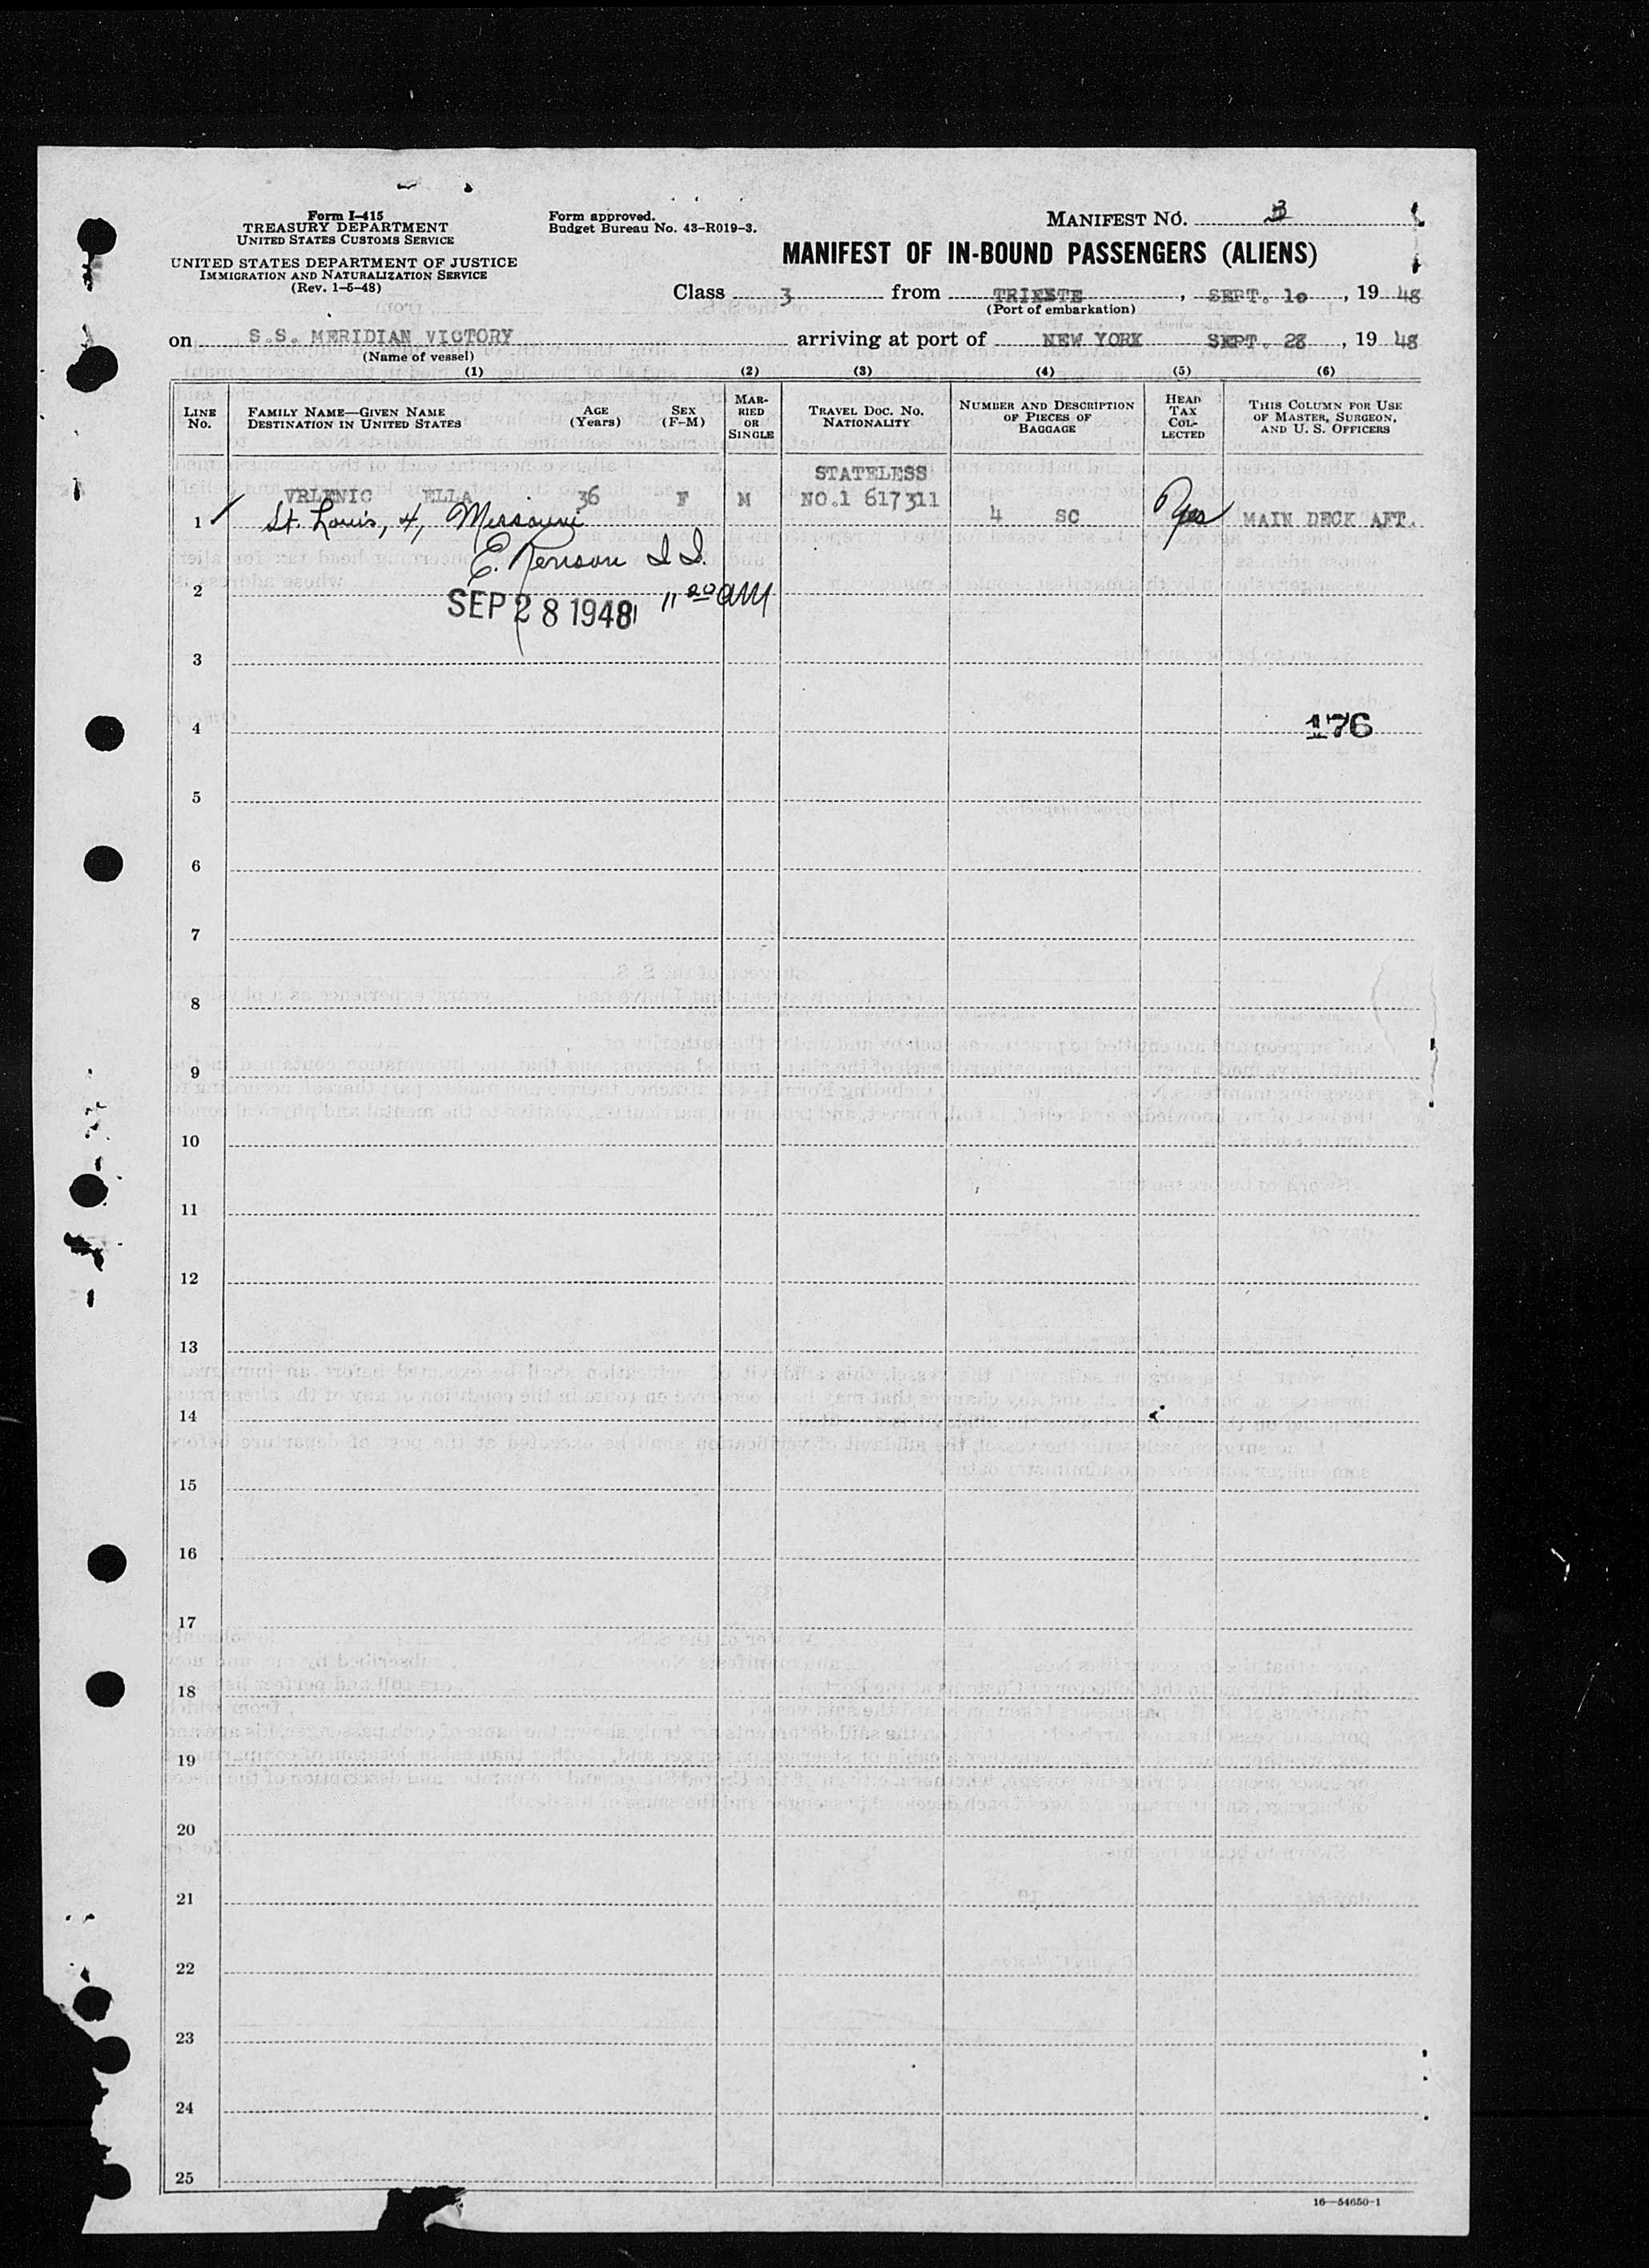 Form I-415
TREASURY DEPARTMENT
UNITED STATES CUSTOMS SERVICE
UNITED STATES DEPARTMENT OF JUSTICE
IMMIGRATION AND NATURALIZATION SERVICE
(Rev. 1-5-48)
Form approved.
Budget Bureau No. 43-R019-3.
MANIFEST NO. 3
MANIFEST OF IN-BOUND PASSENGERS (ALIENS)
Class 3 from TRIESTE, SEPT. 10, 19 48
(Port of embarkation)
on S.S. MERIDIAN VICTORY arriving at port of NEW YORK SEPT. 28, 19 48
(Name of vessel)
(1) (2) (3) (4) (5) (6)
LINE No.
FAMILY NAME—GIVEN NAME
DESTINATION IN UNITED STATES
AGE (Years)
SEX (F-M)
MARRIED OR SINGLE
TRAVEL DOC. NO. NATIONALITY
NUMBER AND DESCRIPTION OF PIECES OF BAGGAGE
HEAD TAX COLLECTED
THIS COLUMN FOR USE OF MASTER, SURGEON, AND U. S. OFFICERS
STATELESS
VRLENIC ELLA 36 F M NO.1 617311
1 St. Louis, 4, Missouri 4 SC yes MAIN DECK AFT.
E. Renison I I.
2
SEP 28 1948 11 20 AM
3
4 176
5
6
7
8
9
10
11
12
13
14
15
16
17
18
19
20
21
22
23
24
25
16—54650-1